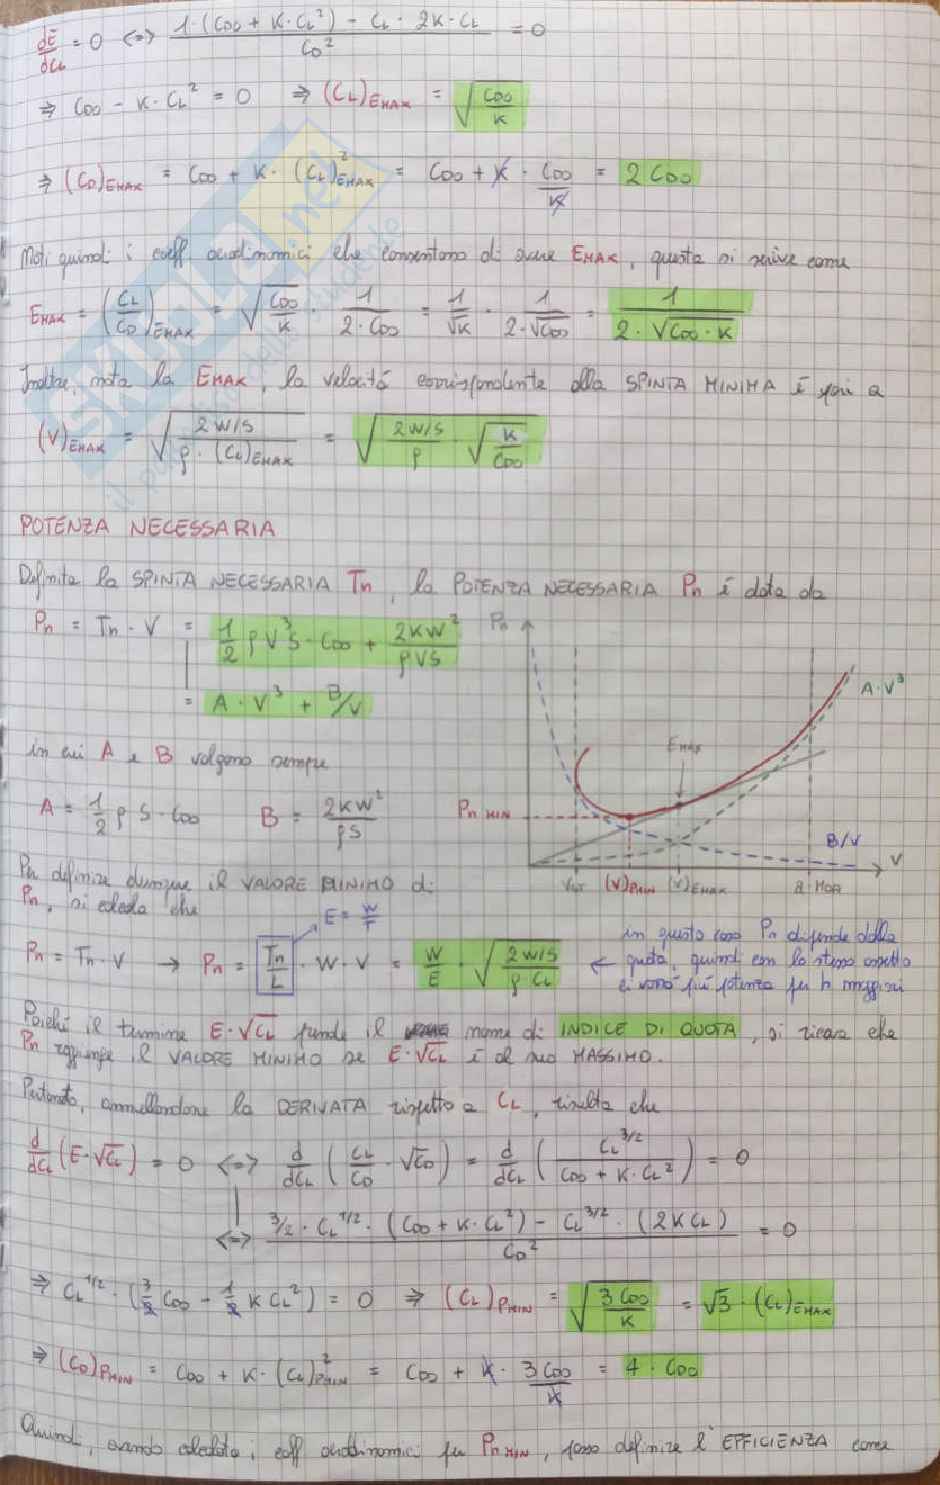 dE/dCL = 0 <=> 1·(CD0 + K·CL²) - CL·2K·CL / CD² = 0
=> CD0 - K·CL² = 0 => (CL)EMAX = √(CD0/K)
=> (CD)EMAX = CD0 + K·(CL)²EMAX = CD0 + K·CD0/K = 2CD0
Noti quindi i coeff. aerodinamici che consentono di avere EMAX, questa si scrive come
EMAX = (CL/CD)EMAX = √(CD0/K) · 1/(2·CD0) = 1/√K · 1/(2·√CD0) = 1/(2·√(CD0·K))
Inoltre, nota la EMAX, la velocità corrispondente alla SPINTA MINIMA è pari a
(V)EMAX = √(2W/S / (ρ·(CL)EMAX)) = √(2W/S / ρ · √(K/CD0))
POTENZA NECESSARIA
Definita la SPINTA NECESSARIA Tn, la POTENZA NECESSARIA Pn è data da
Pn = Tn·V = 1/2 ρV³S·CD0 + 2KW²/ρVS
= A·V³ + B/V
in cui A e B valgono sempre
A = 1/2 ρ S·CD0 B = 2KW²/ρS
Pn
A·V³
EMAX
Pn MIN
B/V
V
(V)PMIN (V)EMAX
Per definire dunque il VALORE MINIMO di
Pn, si che
E = W/T
Pn = Tn·V → Pn = Tn/L · W·V = W/E · √(2W/S / ρCL)
← in questo caso Pn dipende dalla
quota, quindi con lo stesso assetto
ci vorrà più potenza per h maggiori
Poiché il termine E·√CL prende il nome di INDICE DI QUOTA, si ricava che
Pn raggiunge il VALORE MINIMO se E·√CL è al suo MASSIMO.
Pertanto, annullandone la DERIVATA rispetto a CL, risulta che
d/dCL (E·√CL) = 0 <=> d/dCL (CL/CD · √CD) = d/dCL (CL^3/2 / (CD0 + K·CL²)) = 0
<=> 3/2·CL^1/2·(CD0 + K·CL²) - CL^3/2·(2KCL) / CD² = 0
=> CL^1/2·(3/2 CD0 - 1/2 KCL²) = 0 => (CL)PMIN = √(3CD0/K) = √3·(CL)EMAX
=> (CD)PMIN = CD0 + K·(CL)²PMIN = CD0 + K·3CD0/K = 4·CD0
Quindi, avendo calcolato i coeff. aerodinamici per PnMIN, posso definire l'EFFICIENZA come